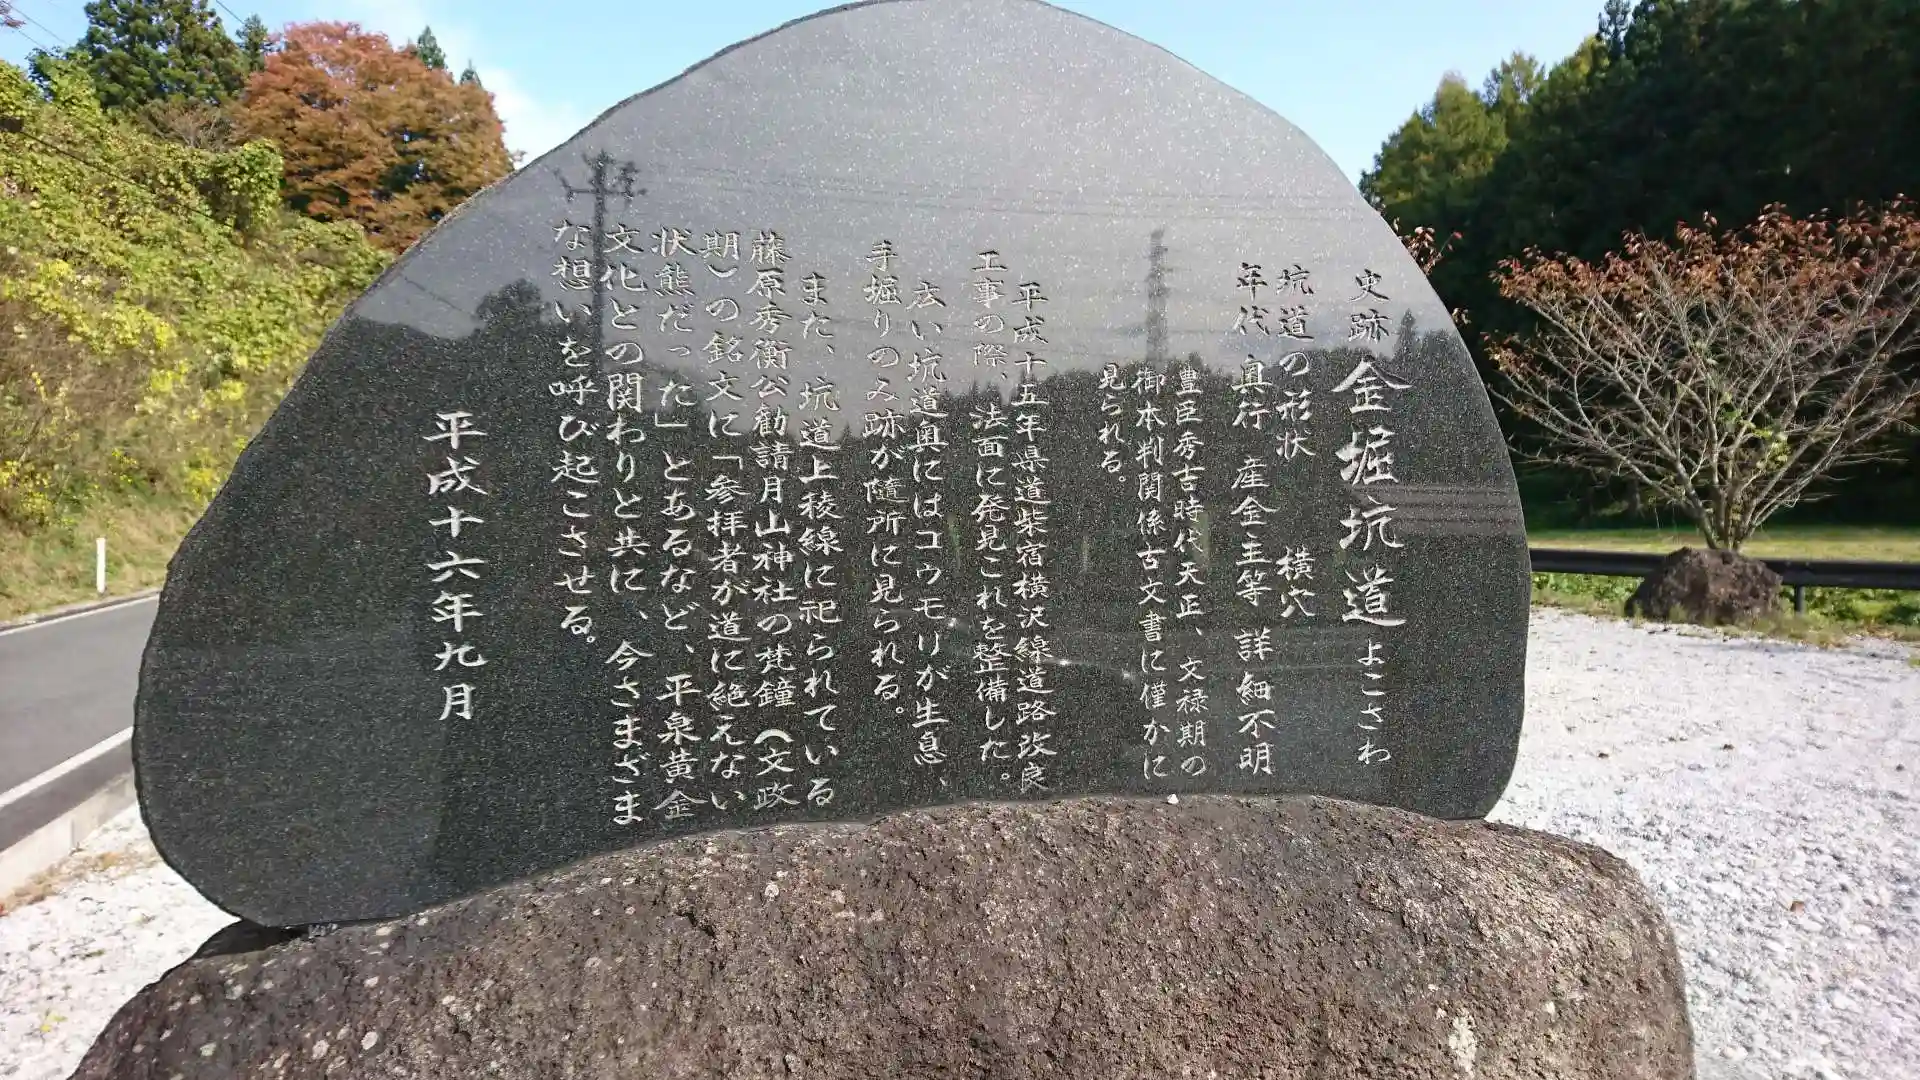 史跡 金堀坑道 よこさわ
坑道の形状 横穴
年代 奥行 産金主等 詳細不明
豊臣秀吉時代天正、文禄期の
御本判関係古文書に僅かに
見られる。
平成十五年県道柴宿横沢線道路改良
工事の際、法面に発見これを整備した。
広い坑道奥にはコウモリが生息、
手堀りのみ跡が隨所に見られる。
また、坑道上稜線に祀られている
藤原秀衡公勧請月山神社の梵鐘(文政
期)の銘文に「参拝者が道に絶えない
状熊だった」とあるなど、平泉黄金
文化との関わりと共に、今さまざま
な想いを呼び起こさせる。
平成十六年九月